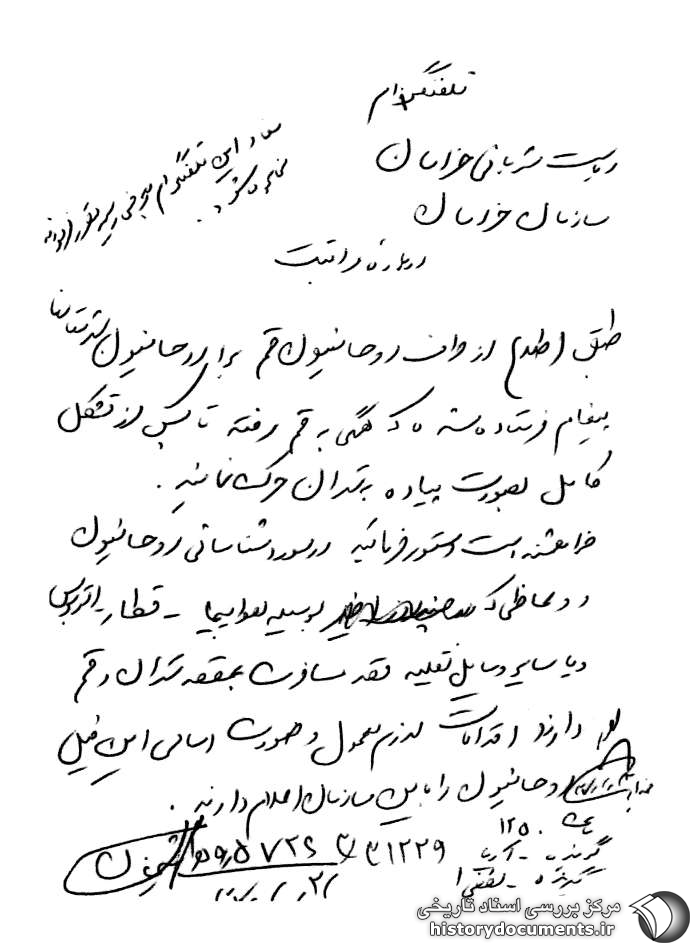 تلفنگرام
ریاست شهربانی خراسان
سازمان خراسان
درباره مراقبت
مفاد این تلفنگرام
طبق اطلاع از طرف روحانیون قم برای روحانیون شهرستانها
پیغام فرستاده شده که همگی به قم رفته تا پس از تشکل
کامل بصورت پیاده به تهران حرکت نمایند.
خواهشمند است دستور فرمائید در مورد شناسائی روحانیون
و وعاظی که بوسیله هواپیما - قطار - اتوبوس
و یا سایر وسایل نقلیه قصد مسافرت بمقصد تهران و قم
را دارند اقدامات لازم معمول و صورت اسامی این قبیل
روحانیون را باین سازمان اعلام دارند.
ساعت ۱۲۵۰
گوینده - آریا
گیرنده
مرکز بررسی اسناد تاریخی
historydocuments.ir